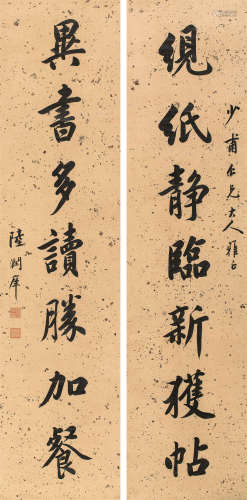 少甫仁兄大人雅正
絸紙静臨新獲帖
異書多讀勝加餐
陸潤庠